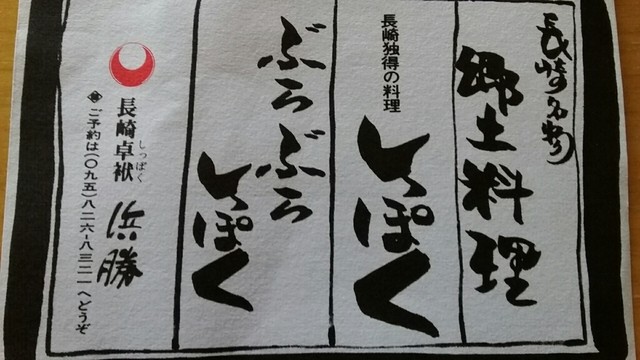 長崎名物
郷土料理
長崎独得の料理
しっぽく
ぶらぶら
しっぽく
長崎卓袱 浜勝
しっぽく
ご予約は(〇九五)八二六-八三二一へどうぞ